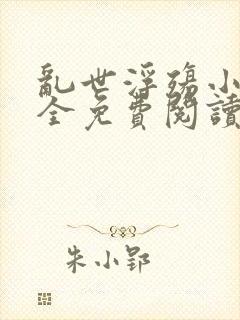 亂世浮殤小
全免費閱讀
朱小郢